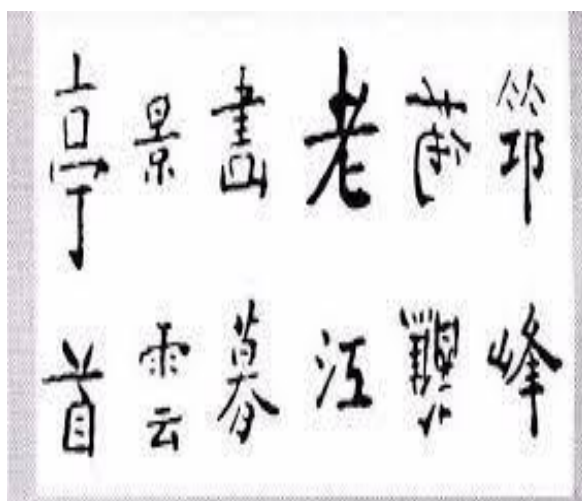 亭景畫老拖筇
首雲暮江蘸峰